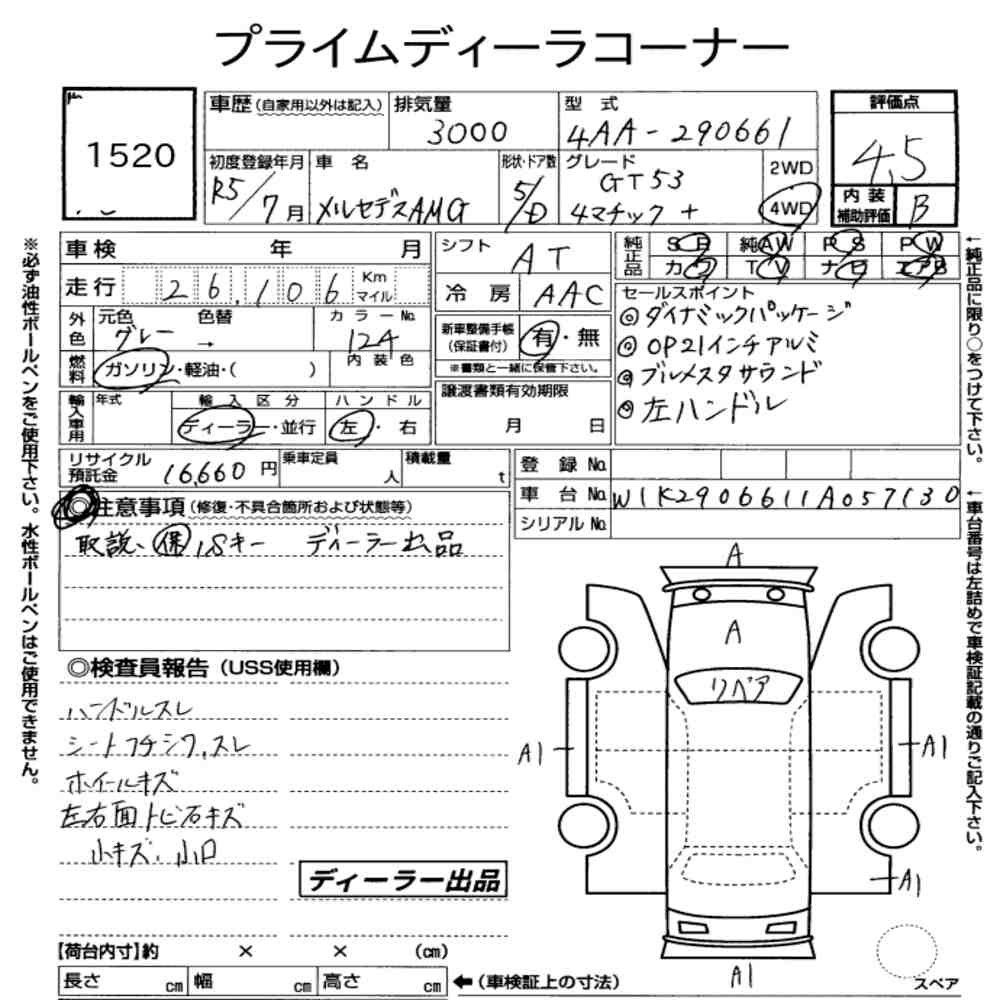 プライムディーラコーナー
1520
車歴(自家用以外は記入)
排気量 3000
型式 4AA-290661
評価点 4.5
初度登録年月 R5/7月
車名 メルセデスAMG
形状・ドア数 5/D
グレード GT53
4マチック +
2WD
4WD
内装補助評価 B
車検 年 月
シフト AT
純正品 SR 純AW PS PW
カワ TV ナビ エアB
走行 26,106 Km マイル
冷房 AAC
セールスポイント
◎ダイナミックパッケージ
◎OP21インチアルミ
◎ブルメスタサウンド
◎左ハンドル
外色 元色 グレー → 色替 カラーNo. 124
新車整備手帳(保証書付) 有・無
※書類と一緒に保管下さい。
燃料 ガソリン・軽油・( )
内装色
譲渡書類有効期限
月 日
輸入車用 年式 輸入区分 ハンドル
ディーラー・並行 左・右
リサイクル預託金 16,660円
乗車定員 人
積載量 t
登録No.
車台No. W1K2906611A057130
シリアルNo.
◎注意事項(修復・不具合箇所および状態等)
取説、保、Sキー ディーラー出品
◎検査員報告(USS使用欄)
ハンドルスレ
シートフチシワ,スレ
ホイールキズ
左右面トビ石キズ
小キズ、小凹
ディーラー出品
A
A
リペア
A1
A1
A1
A1
スペア
【荷台内寸】約 × × (cm)
長さ cm 幅 cm 高さ cm ←(車検証上の寸法)
※必ず油性ボールペンをご使用下さい。水性ボールペンはご使用できません。
←純正品に限り○をつけて下さい。
←車台番号は左詰めで車検証記載の通りご記入下さい。